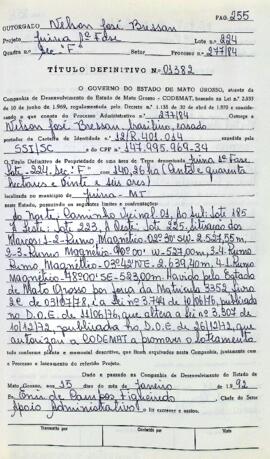 PAG. 255
OUTORGADO Nelson José Bressan
Projeto Juina 1ª Fase Lote nº 224
Quadra nº Sec "F" Setor Processo nº 277/84
TÍTULO DEFINITIVO Nº 01382
O GOVERNO DO ESTADO DE MATO GROSSO, através da
Companhia de Desenvolvimento do Estado de Mato Grosso - CODEMAT, baseado na Lei nº 2.535
de 10 de junho de 1969, regulamentada pelo Decreto nº 1.138 de 02 de abril de 1970 e considerando
o que consta do Processo Administrativo nº 277/84 Outorga a
Nelson José Bressan, brasileiro, casado
portador da Carteira de Identidade nº 12/R. 401.014 expedida
SSI/SC e do CPF nº 147.995.969-34
O Título Definitivo de Propriedade de uma área de Terra denominada Juina 1ª Fase
Lote-224, Sec "F" com 140,26 ha (Cento e quarenta
hectares e vinte e seis ares)
localizada no município de Juina - MT
neste Estado, possuindo os seguintes limites e confrontações:
ao Norte: Caminho Vicinal 01, Ao Sul: Lote 185
A Leste: Lote 223, A Oeste: Lote 225, situação dos
Marcos: 1-2-Rumo Magnético-02°30'SW-2.527,55m,
2-3-Rumo Magnético-90°00'W-527,00m, 3-4-Rumo
Magnético-03°42'NE-2.639,40m, 4-1-Rumo
Magnético-78°00'SE-583,00m. Havido pelo Estado de
Mato Grosso por força da Matrícula 3352, livro
2C de 03/07/78, e a Lei nº 3.744 de 10/06/76, publicado
no D.O.E. de 11/06/76, que altera a lei nº 3.307 de
10/12/72, publicada no D.O.E. de 26/12/72, que
autorizou a CODEMAT a promover o loteamento
tudo conforme planta e memorial descritivo, que ficam arquivados nesta Companhia, juntamente com
o Processo e loteamento do referido Projeto.
Dado e passado na Companhia de Desenvolvimento do Estado de
Mato Grosso, aos 15 dias do mês de Janeiro de 1.9 92
Eu Enir de Campos Figueiredo Chefe do Setor
Apoio Administrativo o fiz escrever e assino.
Transcrito por Conferido por Visto